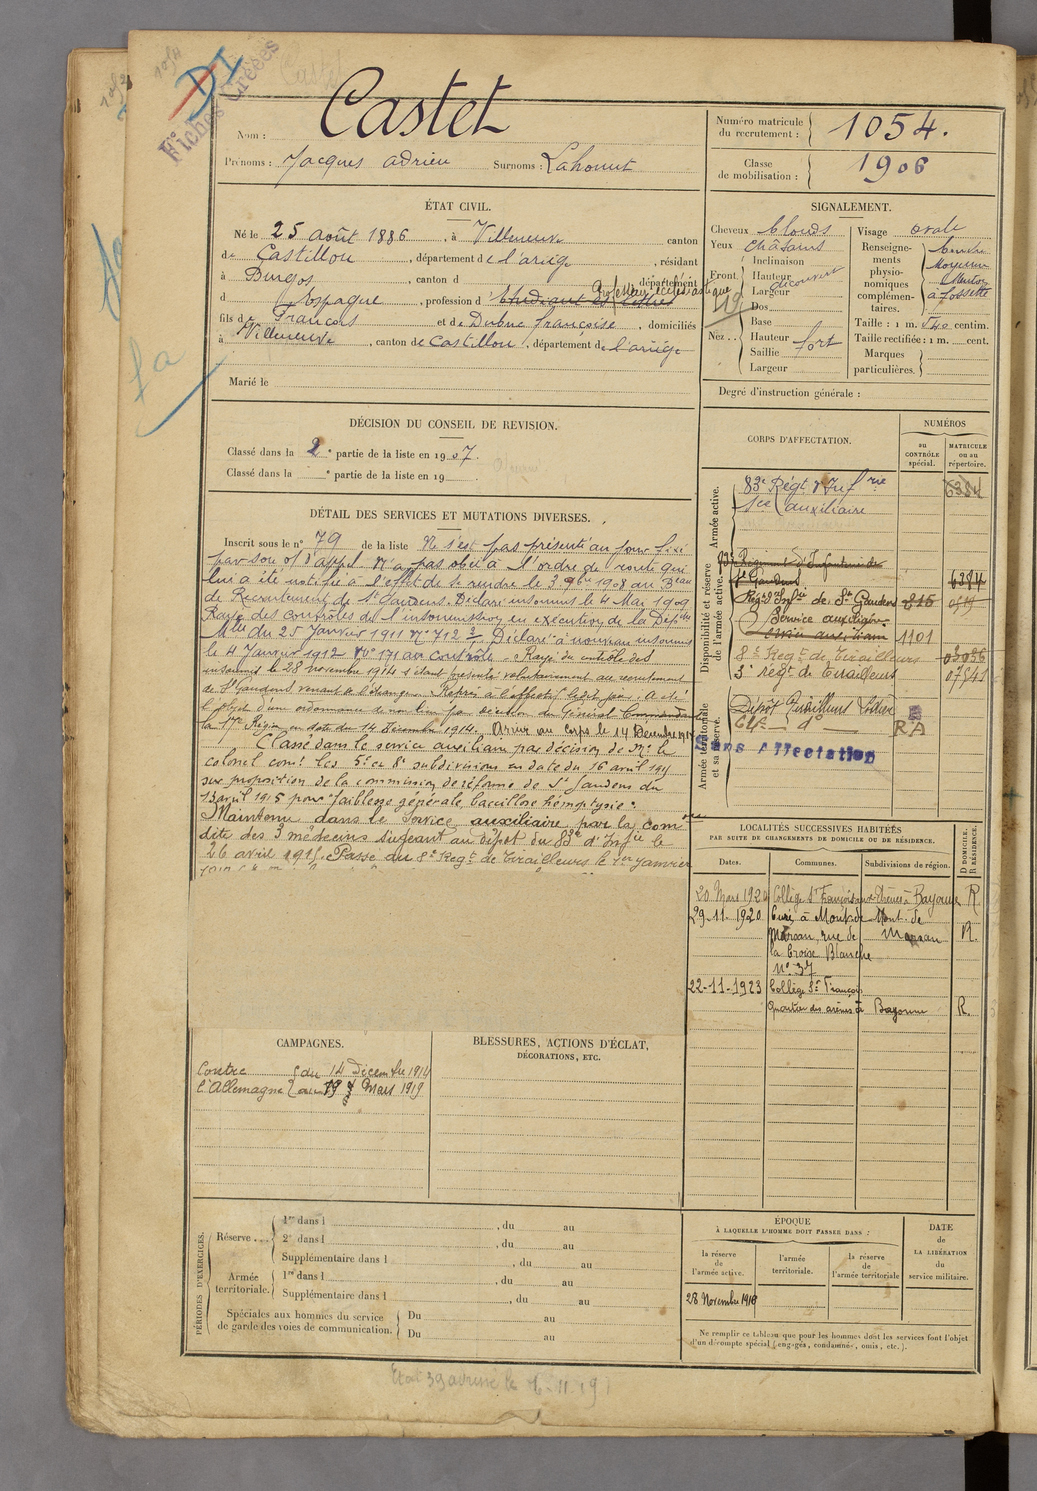 DI
Fiches Créées
Nom : Castet
Prénoms : Jacques adrien Surnoms : Lahount
Numéro matricule du recrutement : 1054.
Classe de mobilisation : 1906
ÉTAT CIVIL.
Né le 25 août 1886, à Villeneuve canton
de Castillon, département de l'ariège, résidant
à Burgos, canton d département
d Espagne, profession d' Etudiant ès lettres Professeur ecclésiastique
fils de François et de Dubuc françoise, domiciliés
à Villeneuve, canton de Castillon, département de l'ariège
Marié le
SIGNALEMENT.
Cheveux blonds
Yeux châtains
Front Inclinaison
Hauteur découvert
Largeur
Nez .. Dos
Base
Hauteur fort
Saillie
Largeur
Visage ovale
Renseignements physionomiques complémentaires. bouche moyenne menton à fossette
Taille : 1 m. 540 centim.
Taille rectifiée : 1 m. cent.
Marques particulières.
Degré d'instruction générale :
DÉCISION DU CONSEIL DE REVISION.
Classé dans la 2e partie de la liste en 1907.
Classé dans la e partie de la liste en 19
DÉTAIL DES SERVICES ET MUTATIONS DIVERSES.
Inscrit sous le n° 79 de la liste Ne s'est pas présenté au jour fixé
par son of d'appel N'a pas obéi à l'ordre de route qui
lui a été notifié à l'effet de se rendre le 3 9bre 1908 au Beau
de Recrutement de St Gaudens. Déclaré insoumis le 4 Mai 1909
Rayé des contrôles de l'insoumission en exécution de la Dépêche
Mlle du 25 Janvier 1911 N° 712 3/. Déclaré à nouveau insoumis
le 4 Janvier 1912 N° 171 au contrôle. Rayé du contrôle des
insoumis le 28 novembre 1914 s'étant présenté volontairement au recrutement
de St Gaudens venant de l'étranger. Repris à l'effectif ledit jour. A été
l'objet d'une ordonnance de non lieu par décision du Général Commandant
la 17e Région en date du 14 Décembre 1914. Arrivé au corps le 14 Décembre 1914
Classé dans le service auxiliaire par décision de Mr le
colonel comt les 5e et 8e subdivisions en date du 16 avril 1915
sur proposition de la commission de réforme de St Gaudens du
13 avril 1915 pour "faiblesse générale bacillose hémoptysie".
Maintenu dans le Service auxiliaire par la com
dite des 3 médecins siégeant au dépôt du 83e d'Infie le
26 avril 1915. Passé au 8e Regt de Tirailleurs le 1er janvier
CORPS D'AFFECTATION.
NUMÉROS
au CONTRÔLE spécial.
MATRICULE ou au répertoire.
Armée active.
83e Régt d'Infrie 6384
Sce auxiliaire
Disponibilité et réserve de l'armée active.
83e Régiment d'Infanterie de
St Gaudens 6384
Régt d'Infie de St Gaudens 816
Service auxiliaire
Service auxiliaire 1101
8e Regt de Tirailleurs 03036
3e régt de Tirailleurs 07541
Armée territoriale et sa réserve.
Dépôt Tirailleurs
Clé d° RA
Sans Affectation
LOCALITÉS SUCCESSIVES HABITÉES
PAR SUITE DE CHANGEMENTS DE DOMICILE OU DE RÉSIDENCE.
Dates. Communes. Subdivisions de région. D DOMICILE. R RÉSIDENCE.
20 Mars 1920 Collège St François aux Arènes à Bayonne R
29.11.1920 Curé à Mont de Mont. de
Marsan, rue de Marsan R.
la Croix Blanche
N° 37
22-11-1923 Collège St François
Quartier des arènes à Bayonne R.
CAMPAGNES.
Contre l'Allemagne du 14 Décembre 1914
au 19 Mars 1919
BLESSURES, ACTIONS D'ÉCLAT,
DÉCORATIONS, ETC.
PÉRIODES D'EXERCICES.
Réserve ... 1re dans l , du au
2e dans l , du au
Supplémentaire dans l , du au
Armée territoriale. 1re dans l , du au
Supplémentaire dans l , du au
Spéciales aux hommes du service de garde des voies de communication. Du au
Du au
ÉPOQUE
À LAQUELLE L'HOMME DOIT PASSER DANS :
la réserve de l'armée active.
l'armée territoriale.
la réserve de l'armée territoriale
DATE de LA LIBÉRATION du service militaire.
28 Novembre 1918
Ne remplir ce tableau que pour les hommes dont les services font l'objet
d'un décompte spécial (engagés, condamnés, omis, etc.).